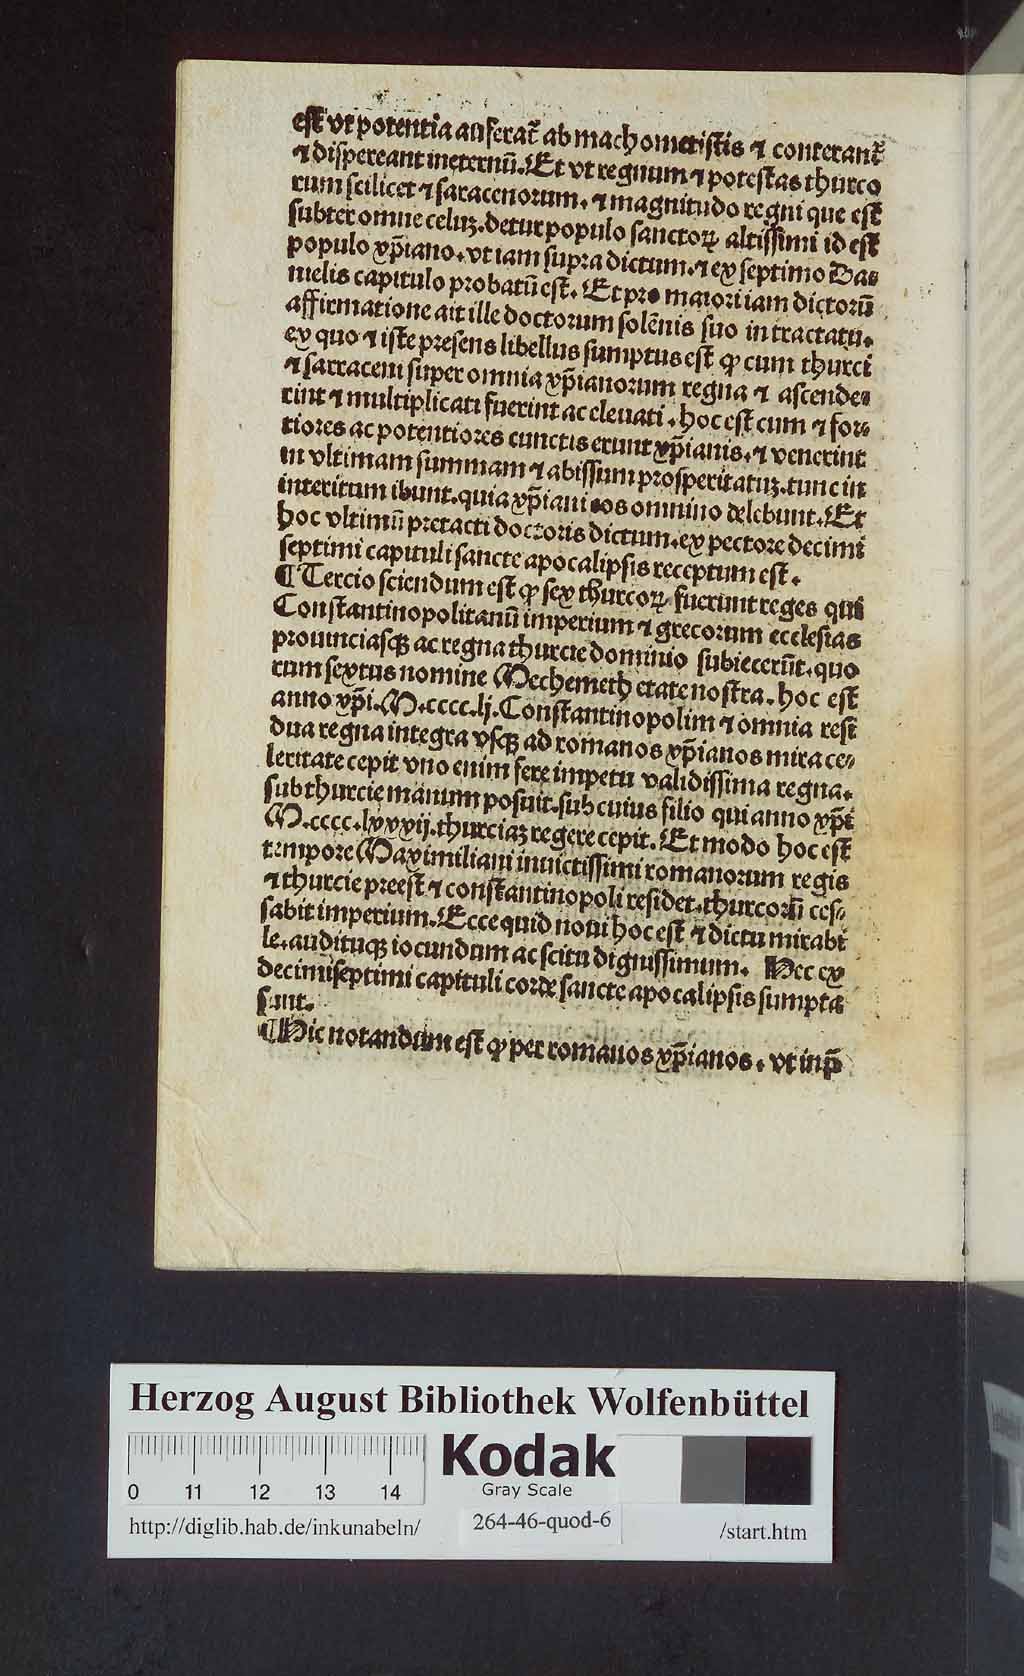 est vt potentia auferat᷑ ab machometistis ⁊ conterant᷑
⁊ dispereant ineternū. Et vt regnum ⁊ potestas thurco
rum scilicet ⁊ saracenorum. ⁊ magnitudo regni que est
subter omne celuꝫ. detur populo sanctoꝝ altissimi id est
populo xp̄iano. vt iam supra dictum. ⁊ ex septimo Da⸗
nielis capitulo probatū est. Et pro maiori iam dictorū
affirmatione ait ille doctorum solēnis suo in tractatu.
ex quo ⁊ iste presens libellus sumptus est ꝙ cum thurci
⁊ sarraceni super omnia xp̄ianorum regna ⁊ ascende⸗
rint ⁊ multiplicati fuerint ac eleuati. hoc est cum ⁊ for⸗
tiores ac potentiores cunctis erunt xp̄ianis. ⁊ venerint
in vltimam summam ⁊ abissum prosperitatuꝫ. tunc in
interitum ibunt. quia xp̄iani eos omnino delebunt. Et
hoc vltimū pretacti doctoris dictum. ex pectore decimi
septimi capituli sancte apocalipsis receptum est.
¶ Tercio sciendum est ꝙ sex thurcoꝝ fuerunt reges qui
Constantinopolitanū imperium ⁊ grecorum ecclesias
prouinciasqꝫ ac regna thurcie dominio subiecerūt. quo
rum sextus nomine Mechemeth etate nostra. hoc est
anno xp̄i. M.cccc.lj. Constantinopolim ⁊ omnia resi
dua regna integra vsqꝫ ad romanos xp̄ianos mira ce⸗
leritate cepit vno enim fere impetu validissima regna.
sub thurcie manum posuit. sub cuius filio qui anno xp̄i
M.cccc.lxxxij. thurciaꝫ regere cepit. Et modo hoc est
tempore Maximiliani inuictissimi romanorum regis
⁊ thurcie preest ⁊ constantinopoli residet. thurcorū ces⸗
sabit imperium. Ecce quid noui hoc est ⁊ dictu mirabi
le. audituqꝫ iocundum ac scitu dignissimum. Hec ex
decimiseptimi capituli corde sancte apocalipsis sumpta
sunt.
¶ Hic notandum est ꝙ per romanos xp̄ianos. vt in p̄
Herzog August Bibliothek Wolfenbüttel
0 11 12 13 14
Kodak
Gray Scale
http://diglib.hab.de/inkunabeln/ 264-46-quod-6 /start.htm